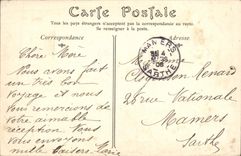 Carte Postale
Tous les pays étrangers n'acceptent pas la correspondance au recto.
Se renseigner à la poste.
Correspondance
Adresse
MAMERS
SARTHE
Chère
Nous avons fait
un très bon
voyage et nous
vous remercions de
votre aimable
réception. Nous
vous envoyons
mille baisers
Renard
26 rue Nationale
Mamers
Sarthe